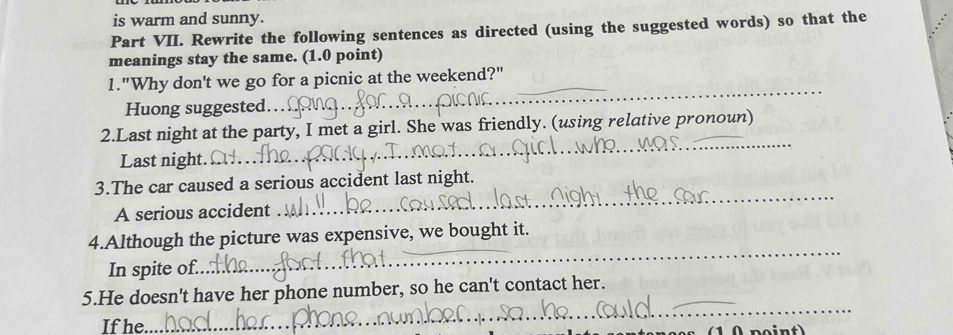 is warm and sunny.
Part VII. Rewrite the following sentences as directed (using the suggested words) so that the
meanings stay the same. (1.0 point)
1."Why don't we go for a picnic at the weekend?"
Huong suggested...going for a picnic
2.Last night at the party, I met a girl. She was friendly. (using relative pronoun)
Last night. at the party, I met a girl who was
3.The car caused a serious accident last night.
A serious accident will be caused last night the car
4.Although the picture was expensive, we bought it.
In spite of...the fact that
5.He doesn't have her phone number, so he can't contact her.
If he....had her phone number, so he could
(1.0 point)